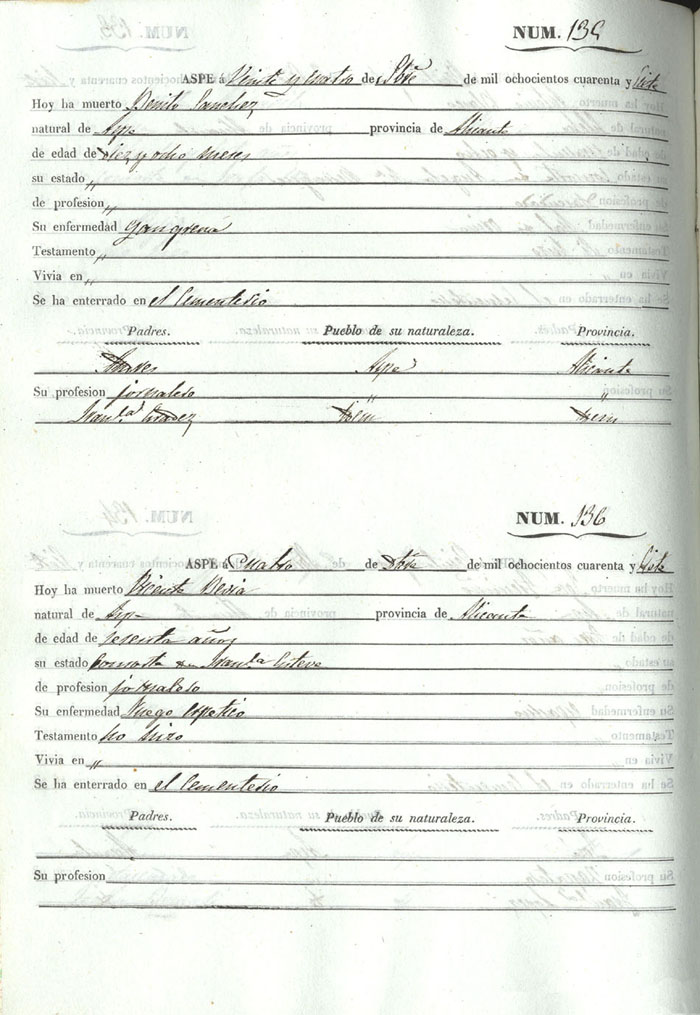 NUM. 135
ASPE á Veinte y cuatro de Sbre de mil ochocientos cuarenta y siete
Hoy ha muerto Benito Sanchez
natural de Aspe provincia de Alicante
de edad de diez y ocho meses
su estado „
de profesion „
Su enfermedad gangrena
Testamento „
Vivia en „
Se ha enterrado en el Cementerio
Padres. Pueblo de su naturaleza. Provincia.
Aspe Alicante
Su profesion jornalero „ „
Fran.ca Ytem Ytem
NUM. 136
ASPE á Cuatro de de mil ochocientos cuarenta y siete
Hoy ha muerto Vicente
natural de Aspe provincia de Alicante
de edad de sesenta años
su estado Consorte de Fran.ca Esteve
de profesion jornalero
Su enfermedad Fuego
Testamento no hizo
Vivia en „
Se ha enterrado en el Cementerio
Padres. Pueblo de su naturaleza. Provincia.
Su profesion